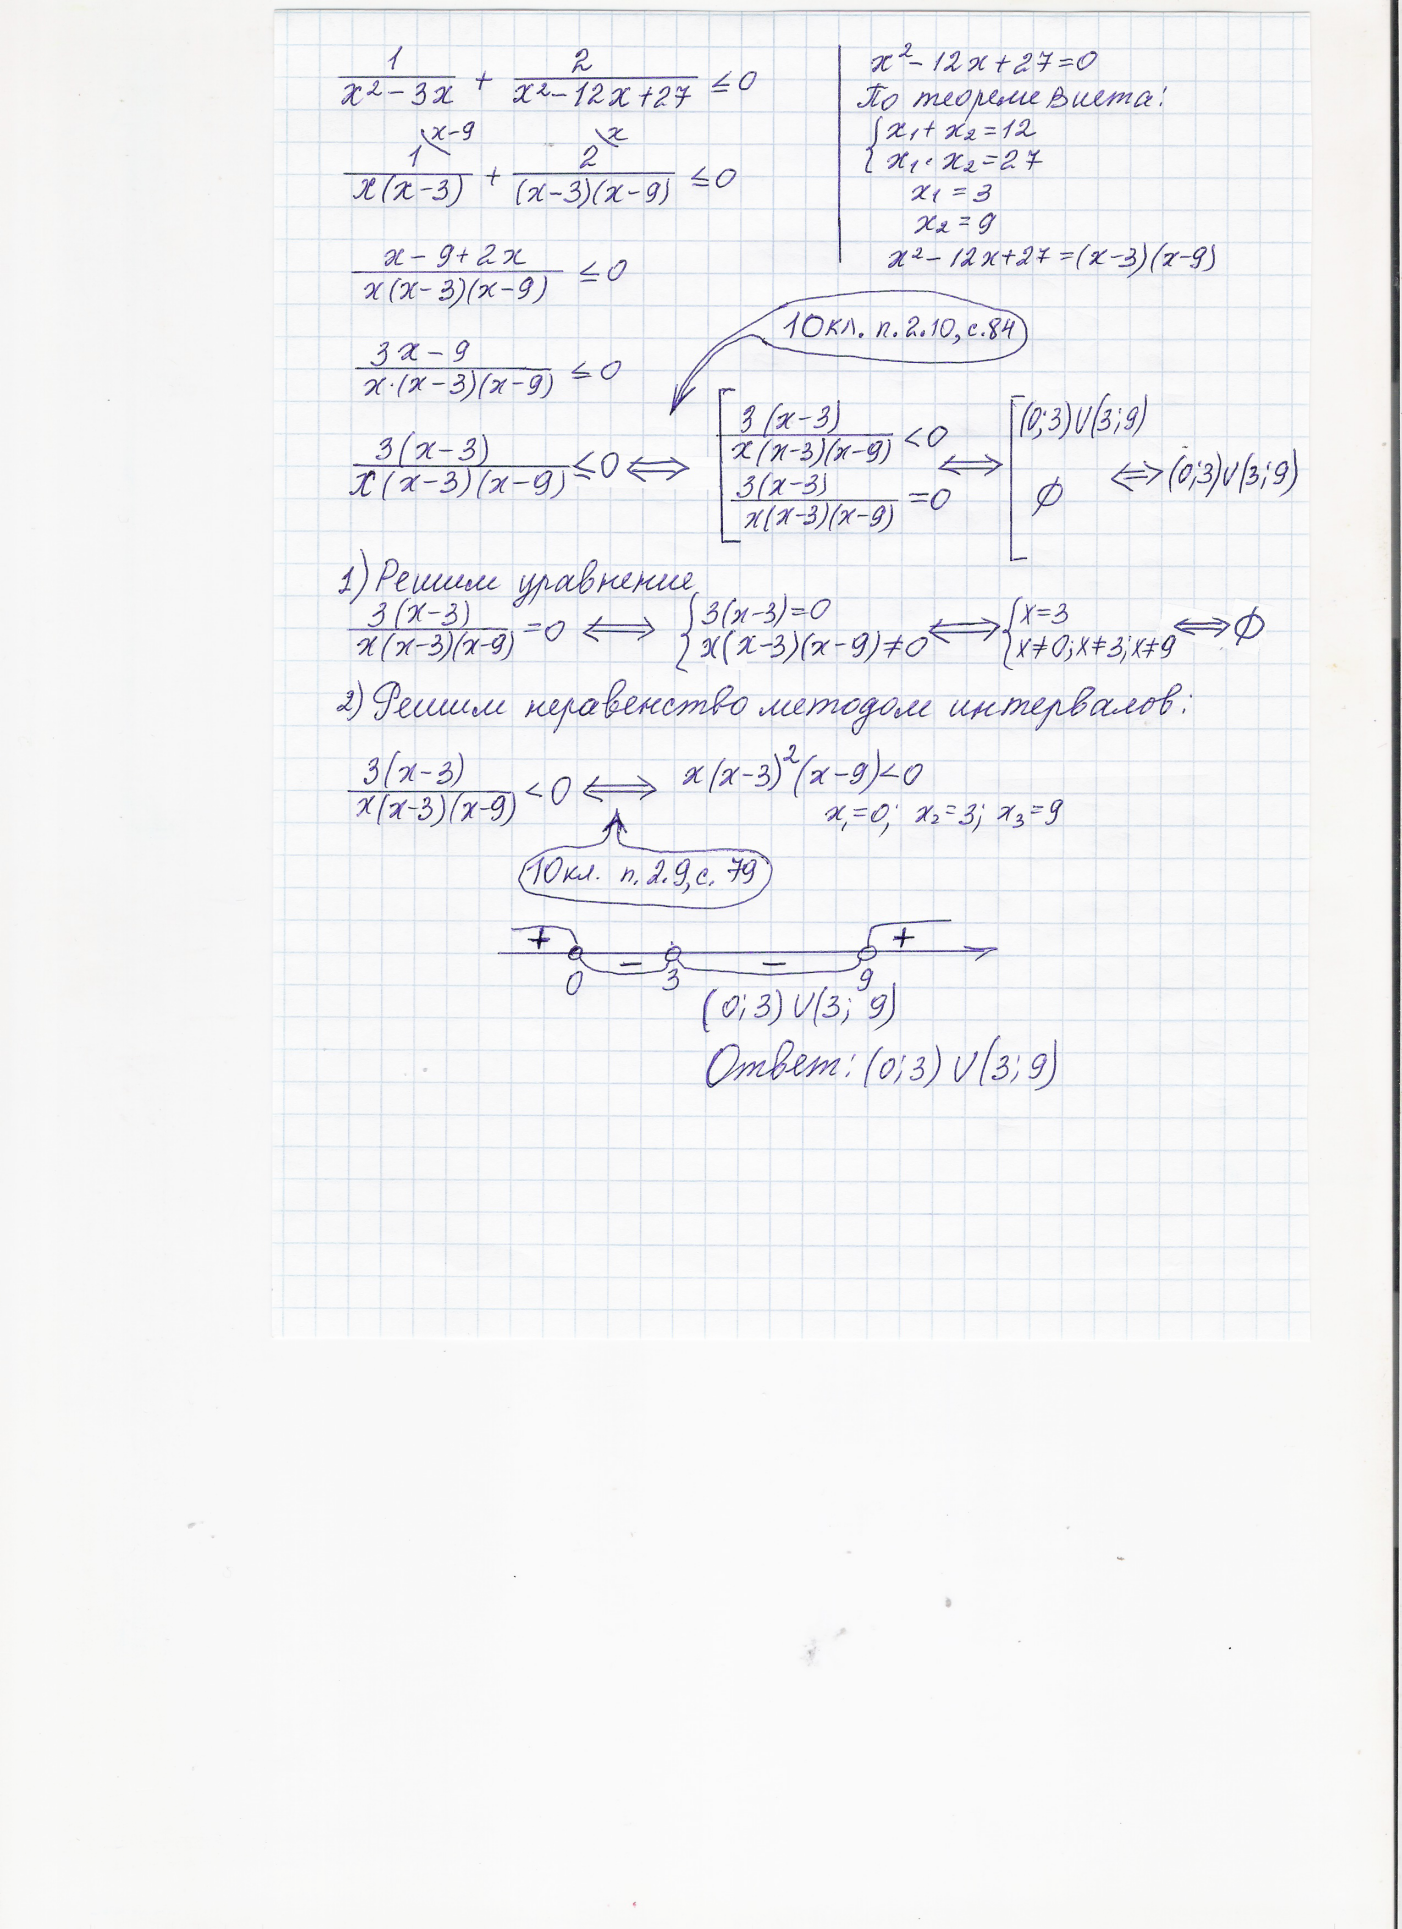 1/(x² − 3x) + 2/(x² − 12x + 27) ≤ 0
1/(x(x−3)) ^(x−9) + 2/((x−3)(x−9)) ^x ≤ 0
(x − 9 + 2x)/(x(x−3)(x−9)) ≤ 0
x² − 12x + 27 = 0
По теореме Виета:
{ x₁ + x₂ = 12
{ x₁ · x₂ = 27
x₁ = 3
x₂ = 9
x² − 12x + 27 = (x−3)(x−9)
10 кл. п. 2.10, с. 84
(3x − 9)/(x·(x−3)(x−9)) ≤ 0
3(x−3)/(x(x−3)(x−9)) ≤ 0 ⟺ [ 3(x−3)/(x(x−3)(x−9)) < 0 ; 3(x−3)/(x(x−3)(x−9)) = 0 ⟺ [ (0;3)∪(3;9) ; ∅ ⟺ (0;3)∪(3;9)
1) Решим уравнение
3(x−3)/(x(x−3)(x−9)) = 0 ⟺ { 3(x−3) = 0 ; x(x−3)(x−9) ≠ 0 ⟺ { x = 3 ; x≠0; x≠3; x≠9 ⟺ ∅
2) Решим неравенство методом интервалов:
3(x−3)/(x(x−3)(x−9)) < 0 ⟺ x(x−3)²(x−9) < 0
x₁ = 0; x₂ = 3; x₃ = 9
10 кл. п. 2.9, с. 79
+ − − +
0 3 9
(0; 3) ∪ (3; 9)
Ответ: (0; 3) ∪ (3; 9)